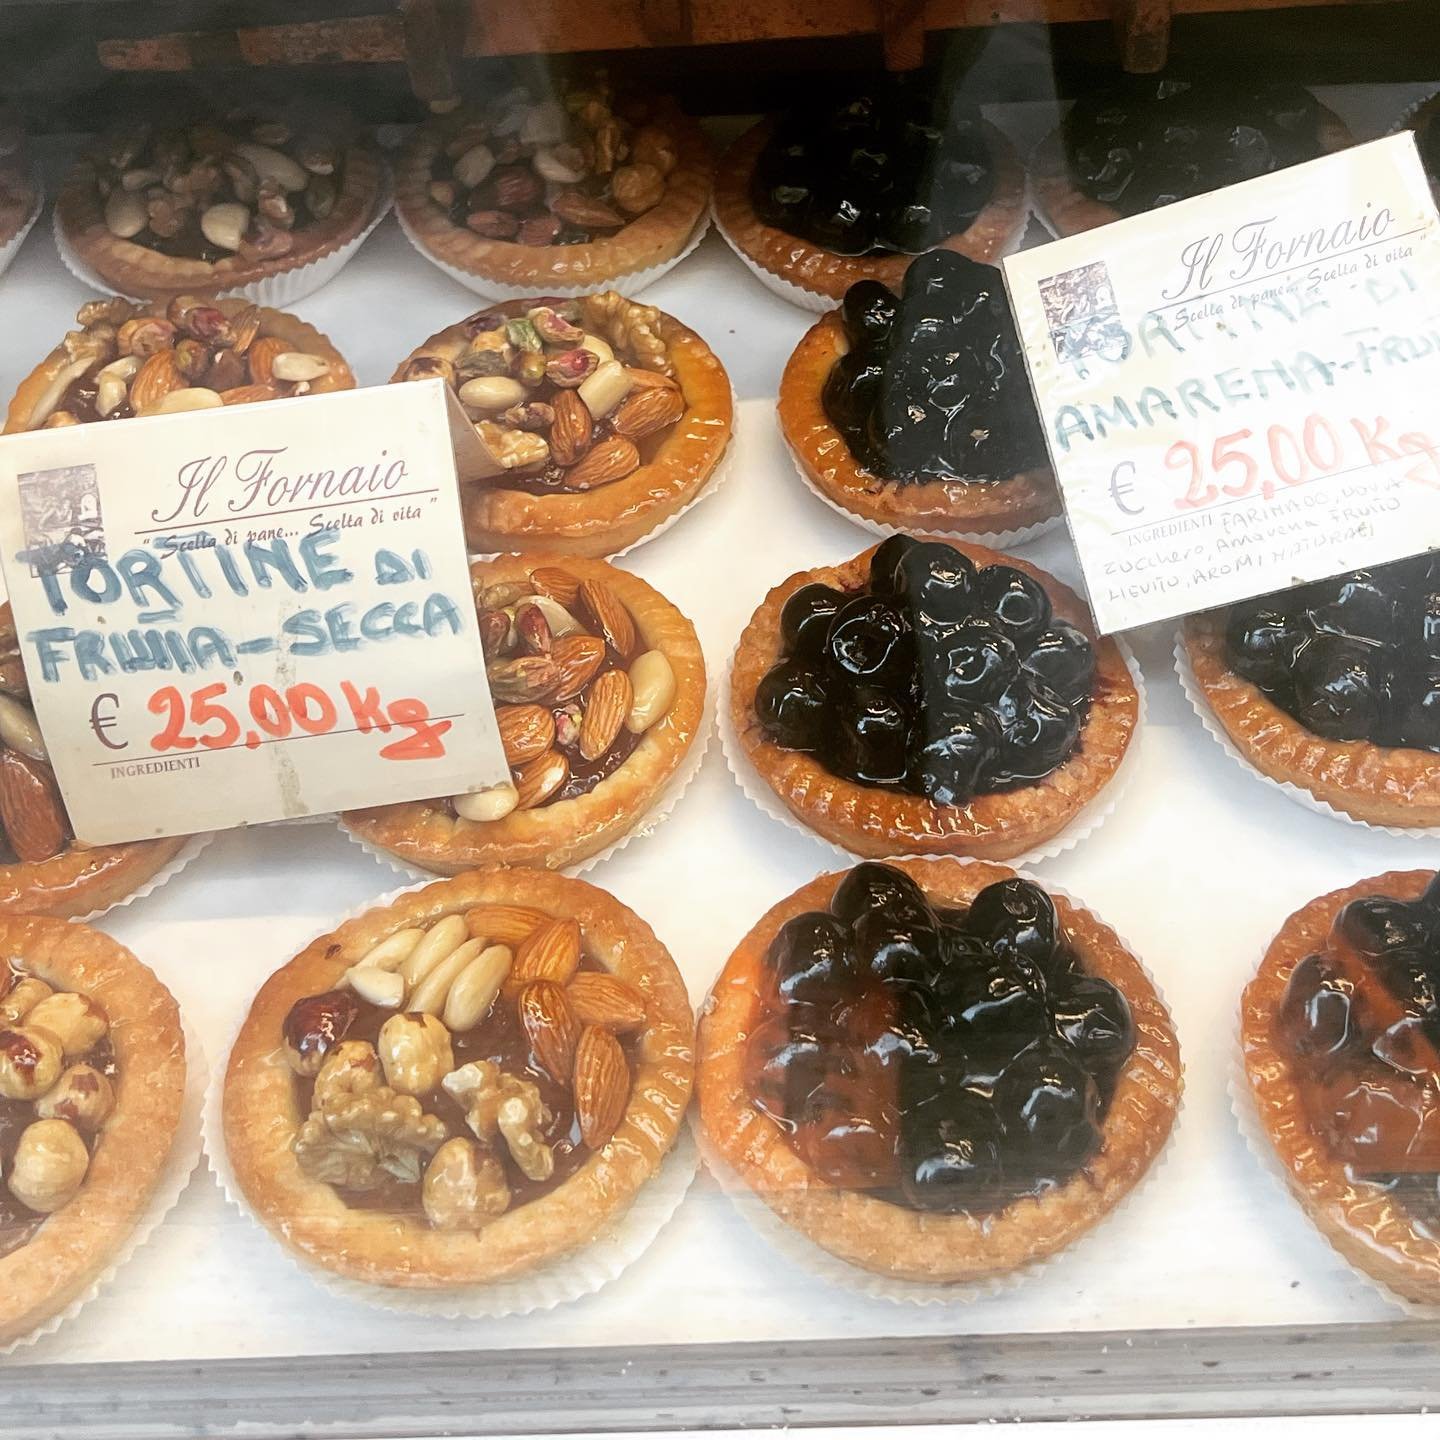 Il Fornaio
" Scelta di pane... Scelta di vita "
TORTINE DI
FRUTTA-SECCA
€ 25,00 Kg
INGREDIENTI
Il Fornaio
" Scelta di pane... Scelta di vita "
TORTINA DI
AMARENA-FRUT
€ 25,00 Kg
INGREDIENTI FARINA 00, UOVA
ZUCCHERO, Amarena FRUTTO
LIEVITO, AROMI NATURALI